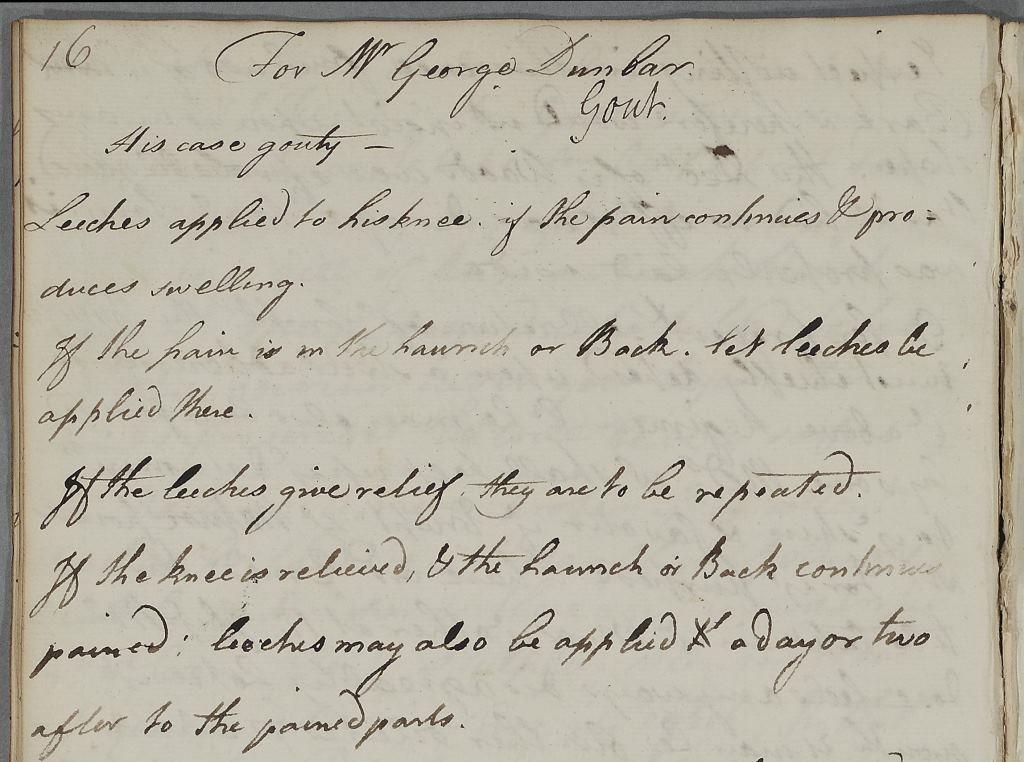 16
For Mr George Dunbar.
Gout.
His case gouty –
Leeches applied to his knee. if the pain continues & pro=
duces swelling.
If the pain is in the haunch or Back. let leeches be
applied there.
If the leeches give relief they are to be repeated.
If the knee is relieved, & the haunch or Back continues
pained; leeches may also be applied a day or two
after to the pained parts.